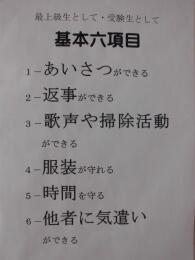 最上級生として・受験生として
基本六項目
1－あいさつができる
2－返事ができる
3－歌声や掃除活動
ができる
4－服装が守れる
5－時間を守る
6－他者に気遣い
ができる